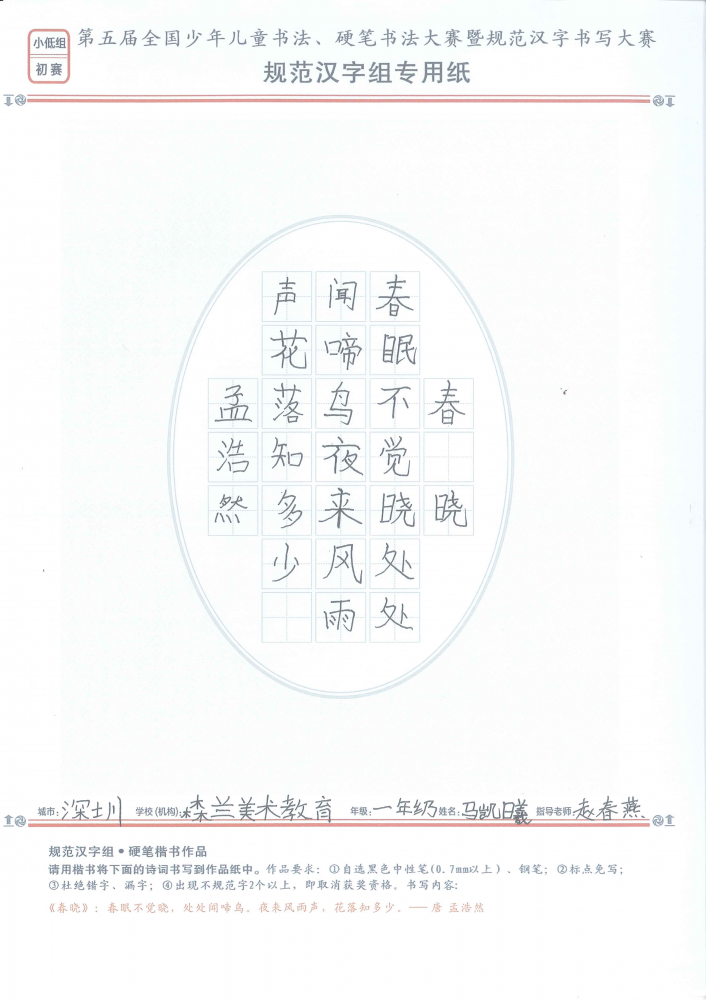 小低组
初赛
第五届全国少年儿童书法、硬笔书法大赛暨规范汉字书写大赛
规范汉字组专用纸
春晓
春眠不觉晓处处
闻啼鸟夜来风雨
声花落知多少
孟浩然
城市:深圳 学校(机构):森林兰美术教育 年级:一年级 姓名:马凯曦 指导老师:赵春燕
规范汉字组·硬笔楷书作品
请用楷书将下面的诗词书写到作品纸中。作品要求:①自选黑色中性笔(0.7mm以上)、钢笔;②标点免写;
③杜绝错字、漏字;④出现不规范字2个以上,即取消获奖资格。书写内容:
《春晓》:春眠不觉晓,处处闻啼鸟。夜来风雨声,花落知多少。——唐 孟浩然